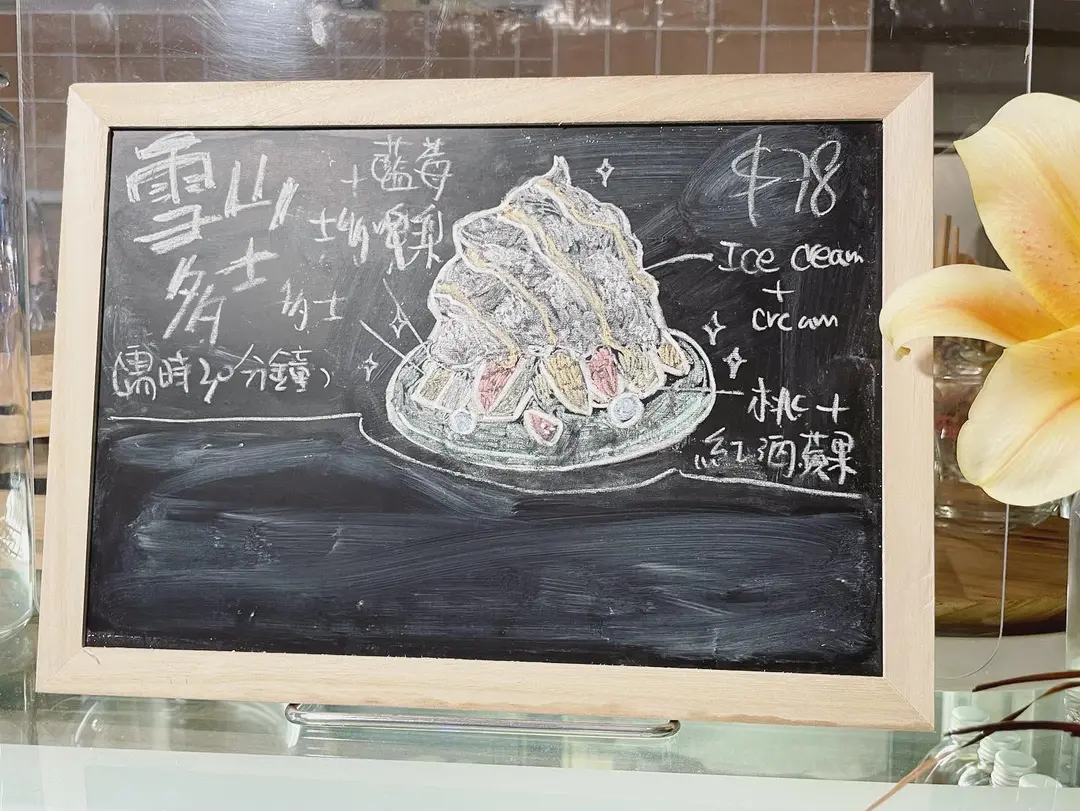 雪山
多士
(需時20分鐘)
+藍莓
士多啤梨
多士
$78
Ice cream
+
cream
桃+
紅酒蘋果